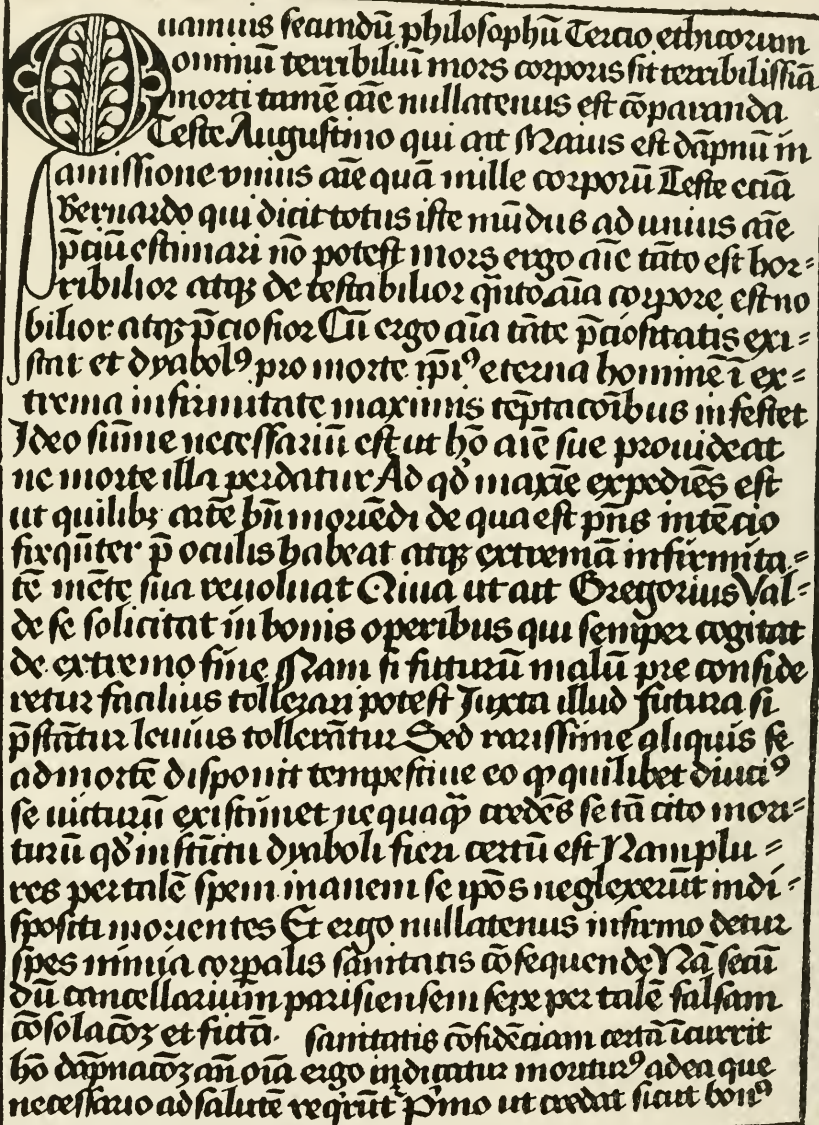 Quamuis secundū philosophū Tercio ethicorum
omniuū terribiliuū mors corporis sit terribilissīa
morti tamē aīe nullatenus est cōparanda
Teste Augustino qui ait Maius est dāpnū in
amissione vnius aīe quā mille corporū Teste eciā
Bernardo qui dicit totus iste mūdus ad unius aīe
p̄ciū estimari nō potest mors ergo aīe tāto est hor=
ribilior atqꝫ de testabilior q̄nto aīa corpore est no
bilior atqꝫ p̄ciosior Cū ergo aīa tāte p̄ciositatis exi=
stat et dyabolꝰ pro morte ip̄iꝰ eterna hominē ī ex=
trema infirmitate maximis tēptacōībus infestet
Ideo sūme necessariū est ut hō aīe sue prouideat
ne morte illa perdatur Ad qd̄ maxīe expediēs est
ut quilibꝫ artē bn̄ moriēdi de qua est pn̄s intēcio
freqn̄ter p̄ oculis habeat atqꝫ extremā infirmita=
tē mēte sua reuoluat Quia ut ait Gregorius Val=
de se solicitat in bonis operibus qui semper cogitat
de extremo fine Nam si futurū malū pre conside
retur facilius tollerari potest Juxta illud futura si
p̄stātur leuius tollerātur Sed rarissime aliquis se
ad mortē disponit tempestiue eo ꝙ quilibet diuciꝰ
se uicturū existimet nequaqꝫ credēs se tā cito mori=
turū qd̄ instīctu dyaboli fieri certū est Nam plu=
res per talē spem inanem se ip̄os neglexerūt indi=
spositi morientes Et ergo nullatenus infirmo detur
spes nimia corp̄alis sanitatis cōsequende Nā secū
dū cancellariūm parisiensem sepe per talē falsam
cōsolacōꝫ et fictā. sanitatis cōfidēciam certā īcurrit
hō dāpnacōꝫ an̄ oīa ergo inducatur moriturꝰ ad ea que
necessario ad salutē reqr̄ūt P̄mo ut credat sicut bonꝰ